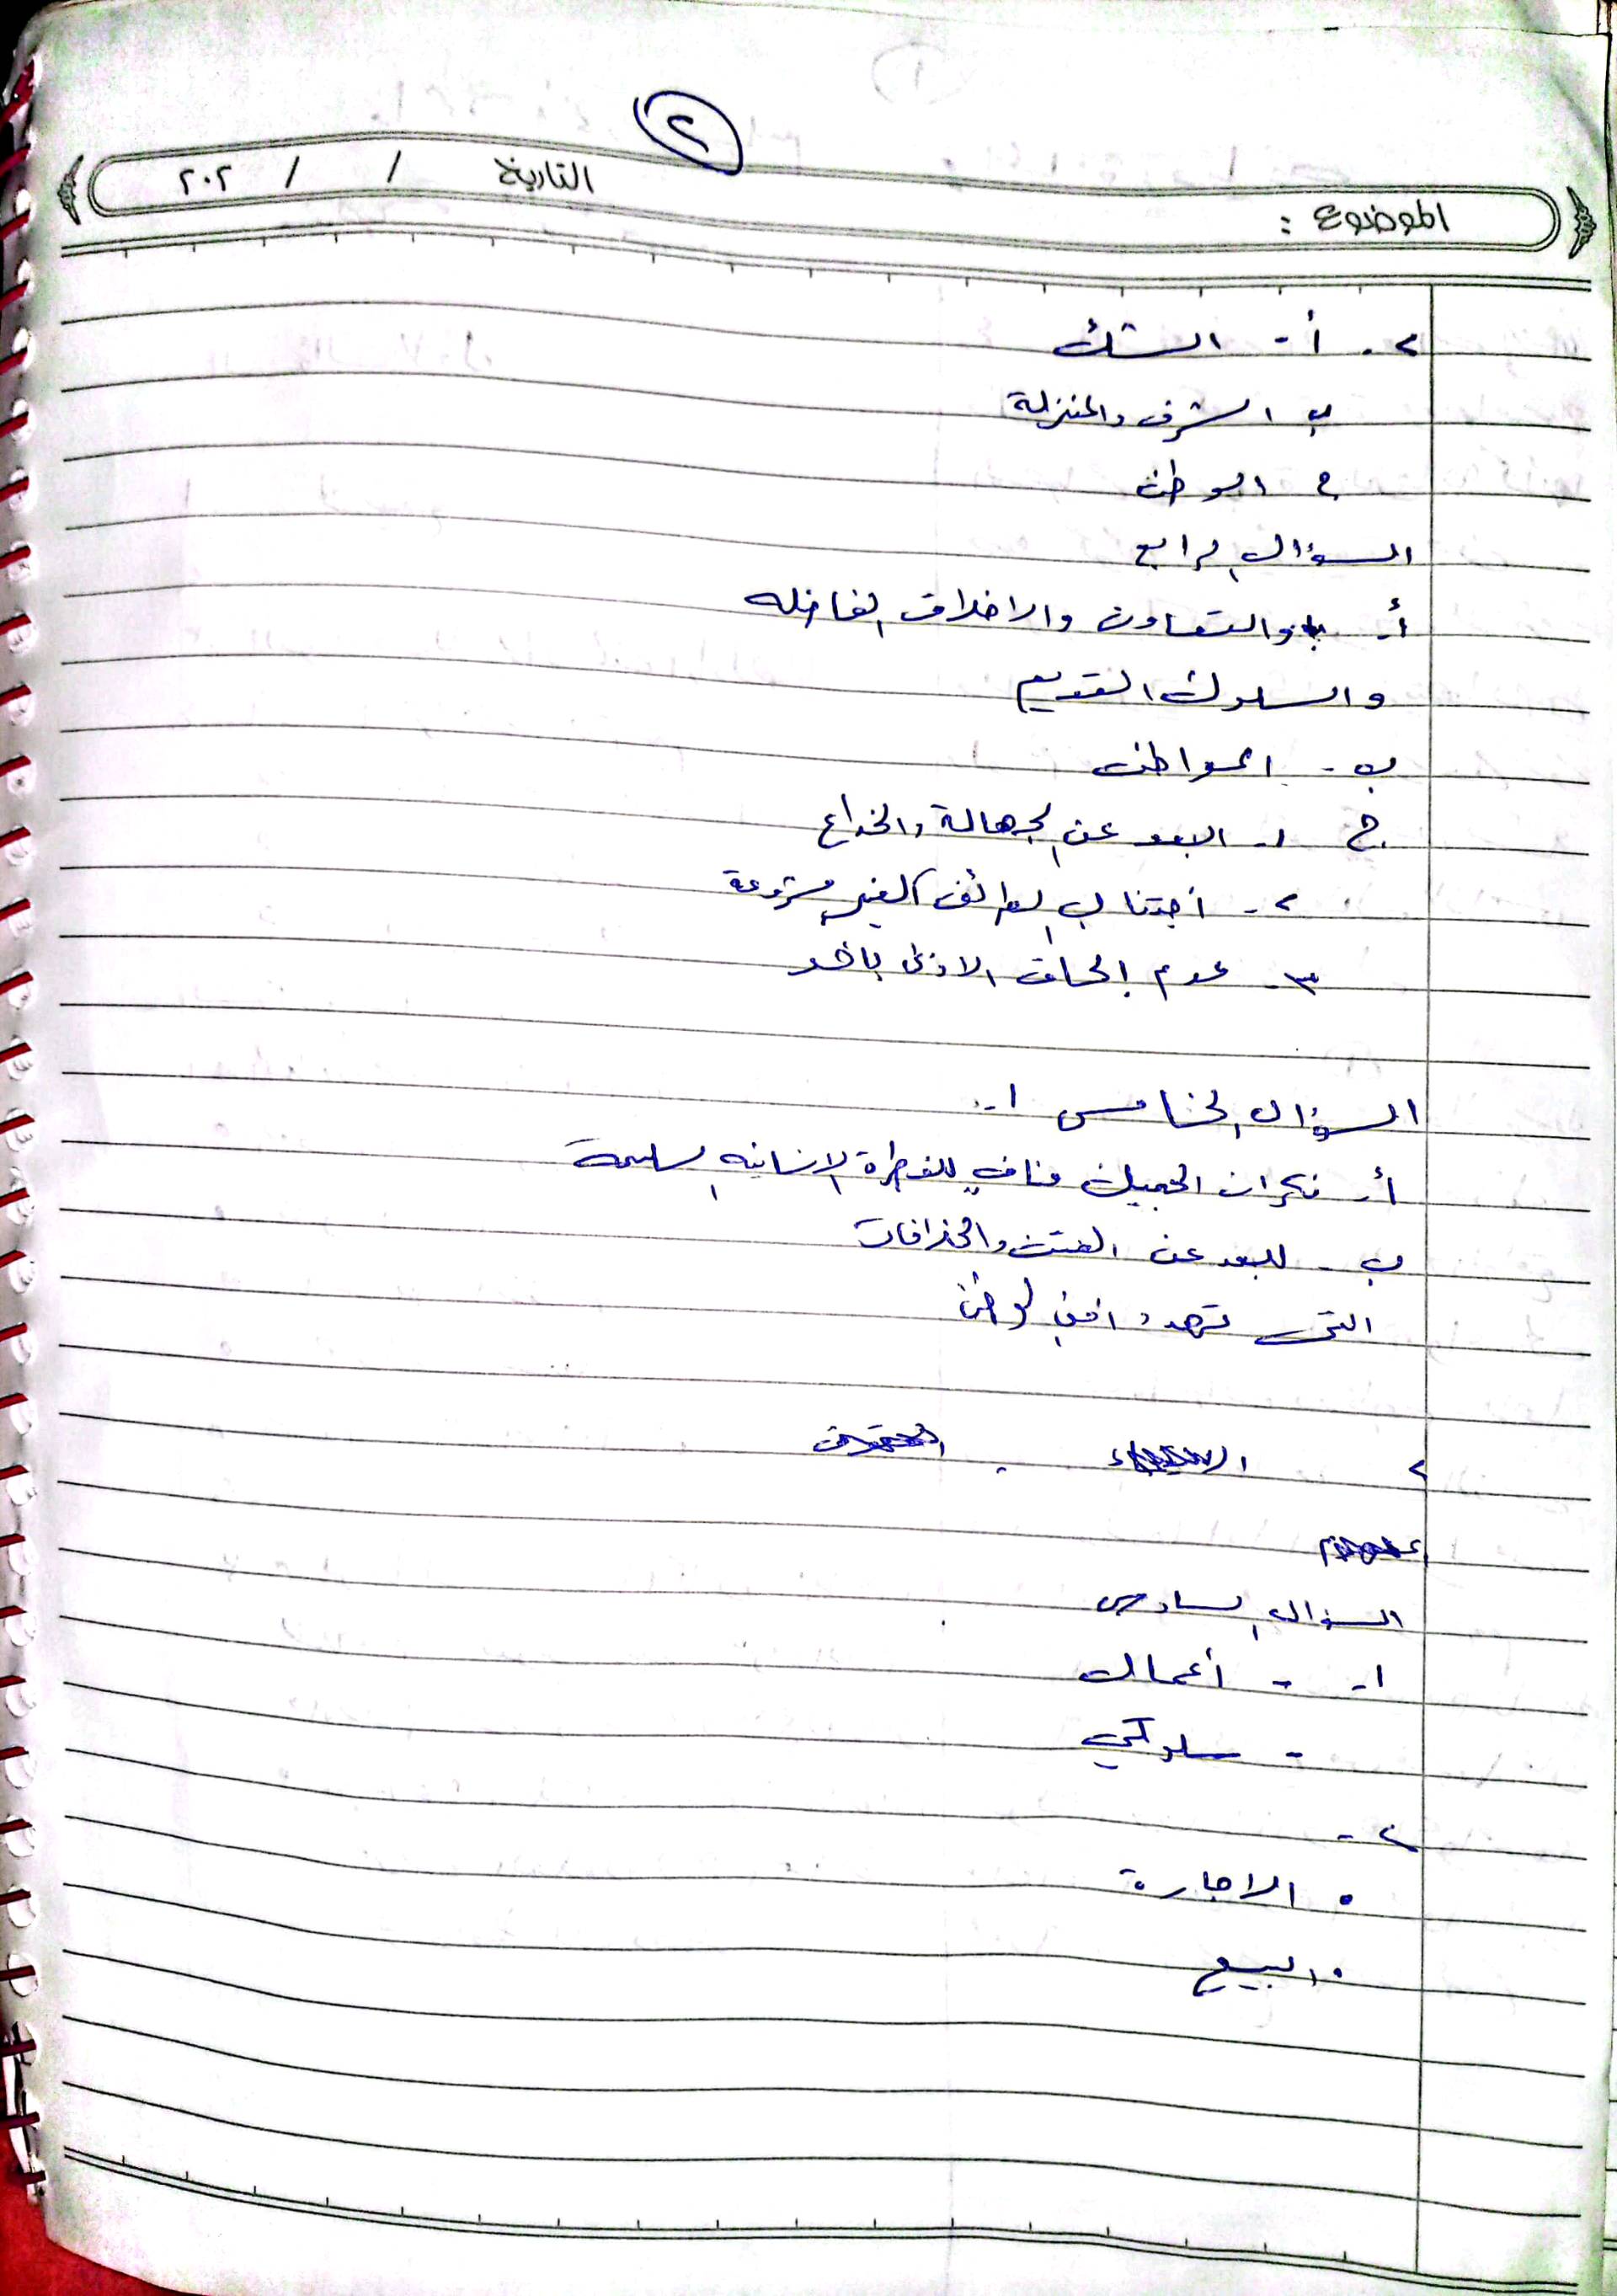 ٢
التاريخ / / ٢٠٢
الموضوع :
٢. أ - الشك
ب الشرف والمنزلة
ج الوطن
السؤال الرابع
أ- والتعاون والاخلاق الفاضله
والسلوك القويم
ب - المواطن
ج ١- البعد عن الجهالة والخداع
٢ - اجتناب الطرائق الغير مشروعة
٣ - عدم إلحاق الاذى باحد
السؤال الخامس ١-
أ- نكران الجميل منافٍ للفطرة الانسانيه السليمة
ب - للبعد عن الفتن والخرافات
التى تهدد امن الوطن
٢
السؤال السادس
١- - أعمال
- سلوكي
٢ -
• الاجارة
• البيع